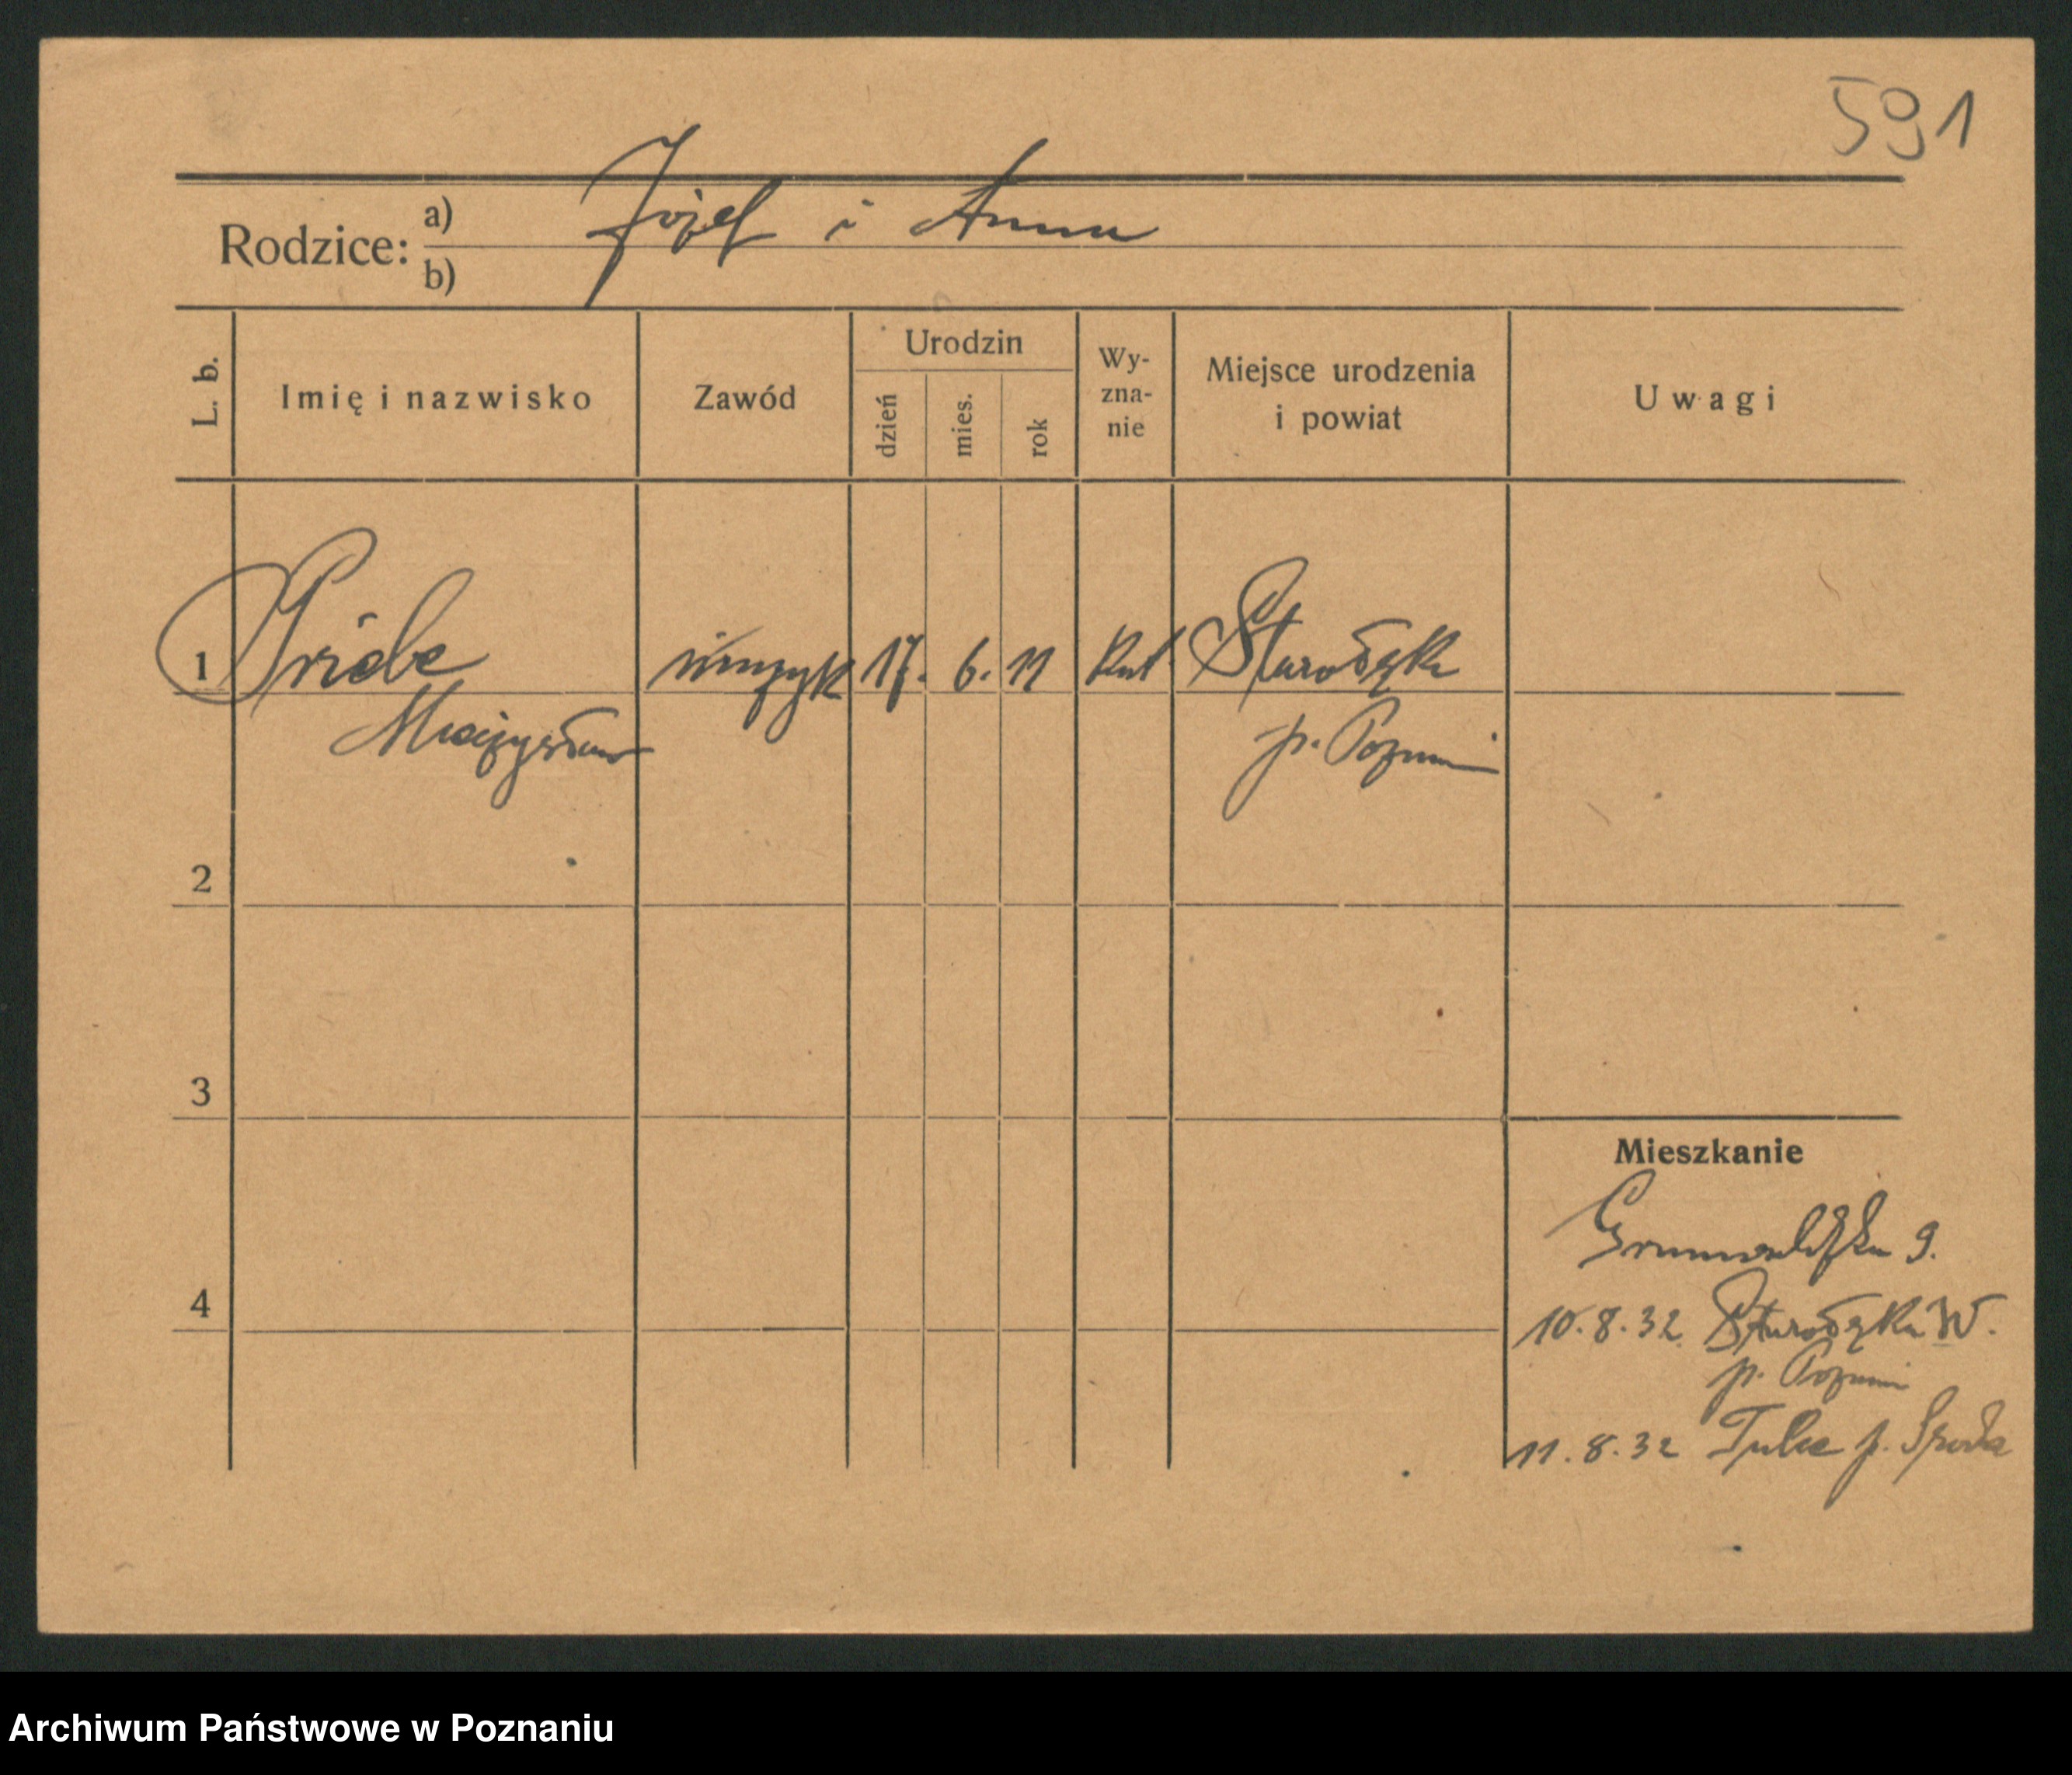 591
Rodzice: a) Józef i Anna
b)
L. b.
Imię i nazwisko
Zawód
Urodzin
dzień
mies.
rok
Wy-
zna-
nie
Miejsce urodzenia
i powiat
Uwagi
1 Priebe 17. 6. 11 kat. Starołęka
Mieczysław p. Poznań
2
3
4
Mieszkanie
Grunwaldzka 9.
10.8.32 Starołęka W.
p. Poznań
11.8.32 Tulce p. Środa
Archiwum Państwowe w Poznaniu